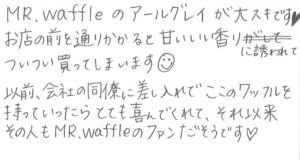 MR.waffle のアールグレイが大スキです♥
お店の前を通りかかると甘いいい香りがして
に誘われて
ついつい買ってしまいます☺
以前、会社の同僚に差し入れでここのワッフルを
持っていったらとても喜んでくれて、それ以来
その人もMR.waffleのファンだそうです♡